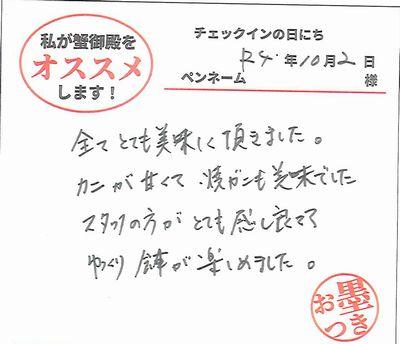 私が蟹御殿を
オススメ
します！
チェックインの日にち
R4.年10月2日
ペンネーム 様
全てとても美味しく頂きました。
カニが甘くて、焼ガニも美味でした
スタッフの方がとても感じ良くて
ゆっくり食事が楽しめました。
お墨つき